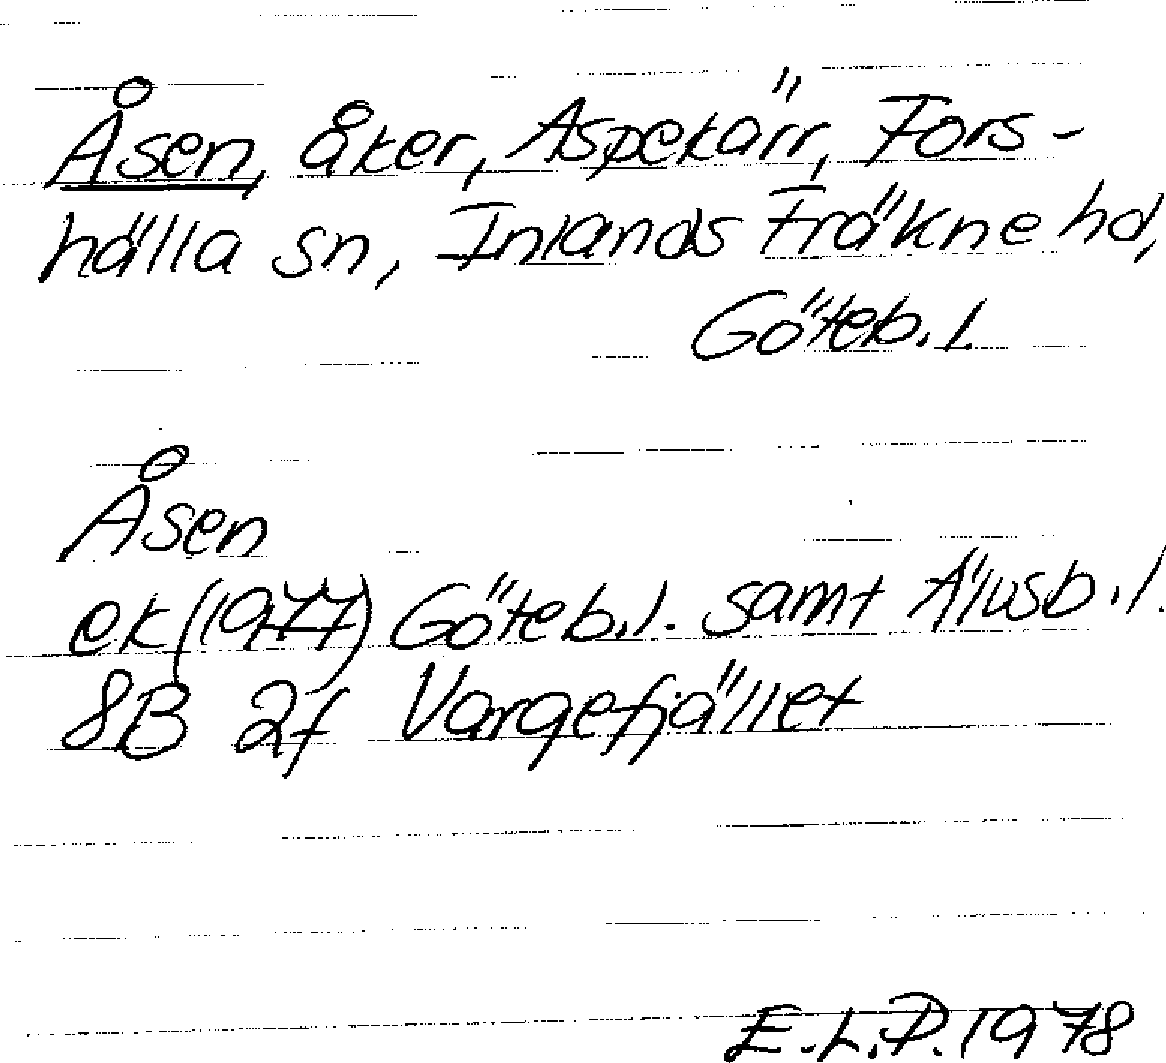 Åsen, åker, Aspekärr, Fors-
hälla sn, Inlands Fräkne hd,
Göteb.l.
Åsen
ek (1977) Göteb.l. samt Älvsb.l.
8B 2f Vargefjället
E.L.P. 1978